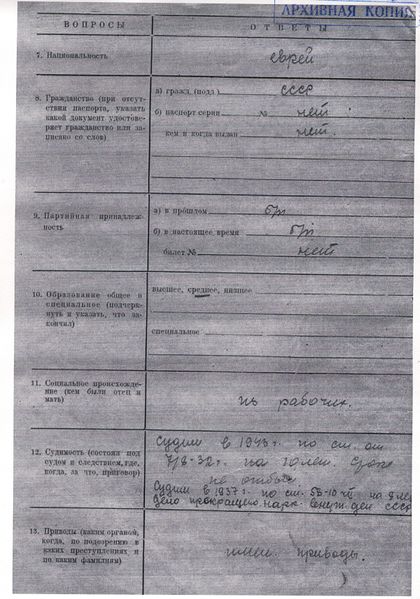 АРХИВНАЯ КОПИЯ
ВОПРОСЫ ОТВЕТЫ
7. Национальность еврей
8. Гражданство (при отсут-
ствии паспорта, указать
какой документ удостове-
ряет гражданство или за-
писано со слов)
а) гражд. (подд.) СССР
б) паспорт серии № нет
кем и когда выдан нет.
9. Партийная принадлеж-
ность
а) в прошлом б/п
б) в настоящее время б/п
билет № нет
10. Образование общее и
специальное (подчерк-
нуть и указать, что за-
кончил)
высшее, среднее, низшее
специальное
11. Социальное происхожде-
ние (кем были отец и
мать)
из рабочих.
12. Судимость (состоял под
судом и следствием, где,
когда, за что, приговор)
Судим в 1943 г. по ст. от
7/8-32 г. на лет. Срок
не отбыл
Судим в 1937 г. по ст. 58-10 на
дело прекращено нарк. внут. дел СССР
13. Приводы (каким органом,
когда, по подозрению в
каких преступлениях и
по каким фамилиям)
приводы.